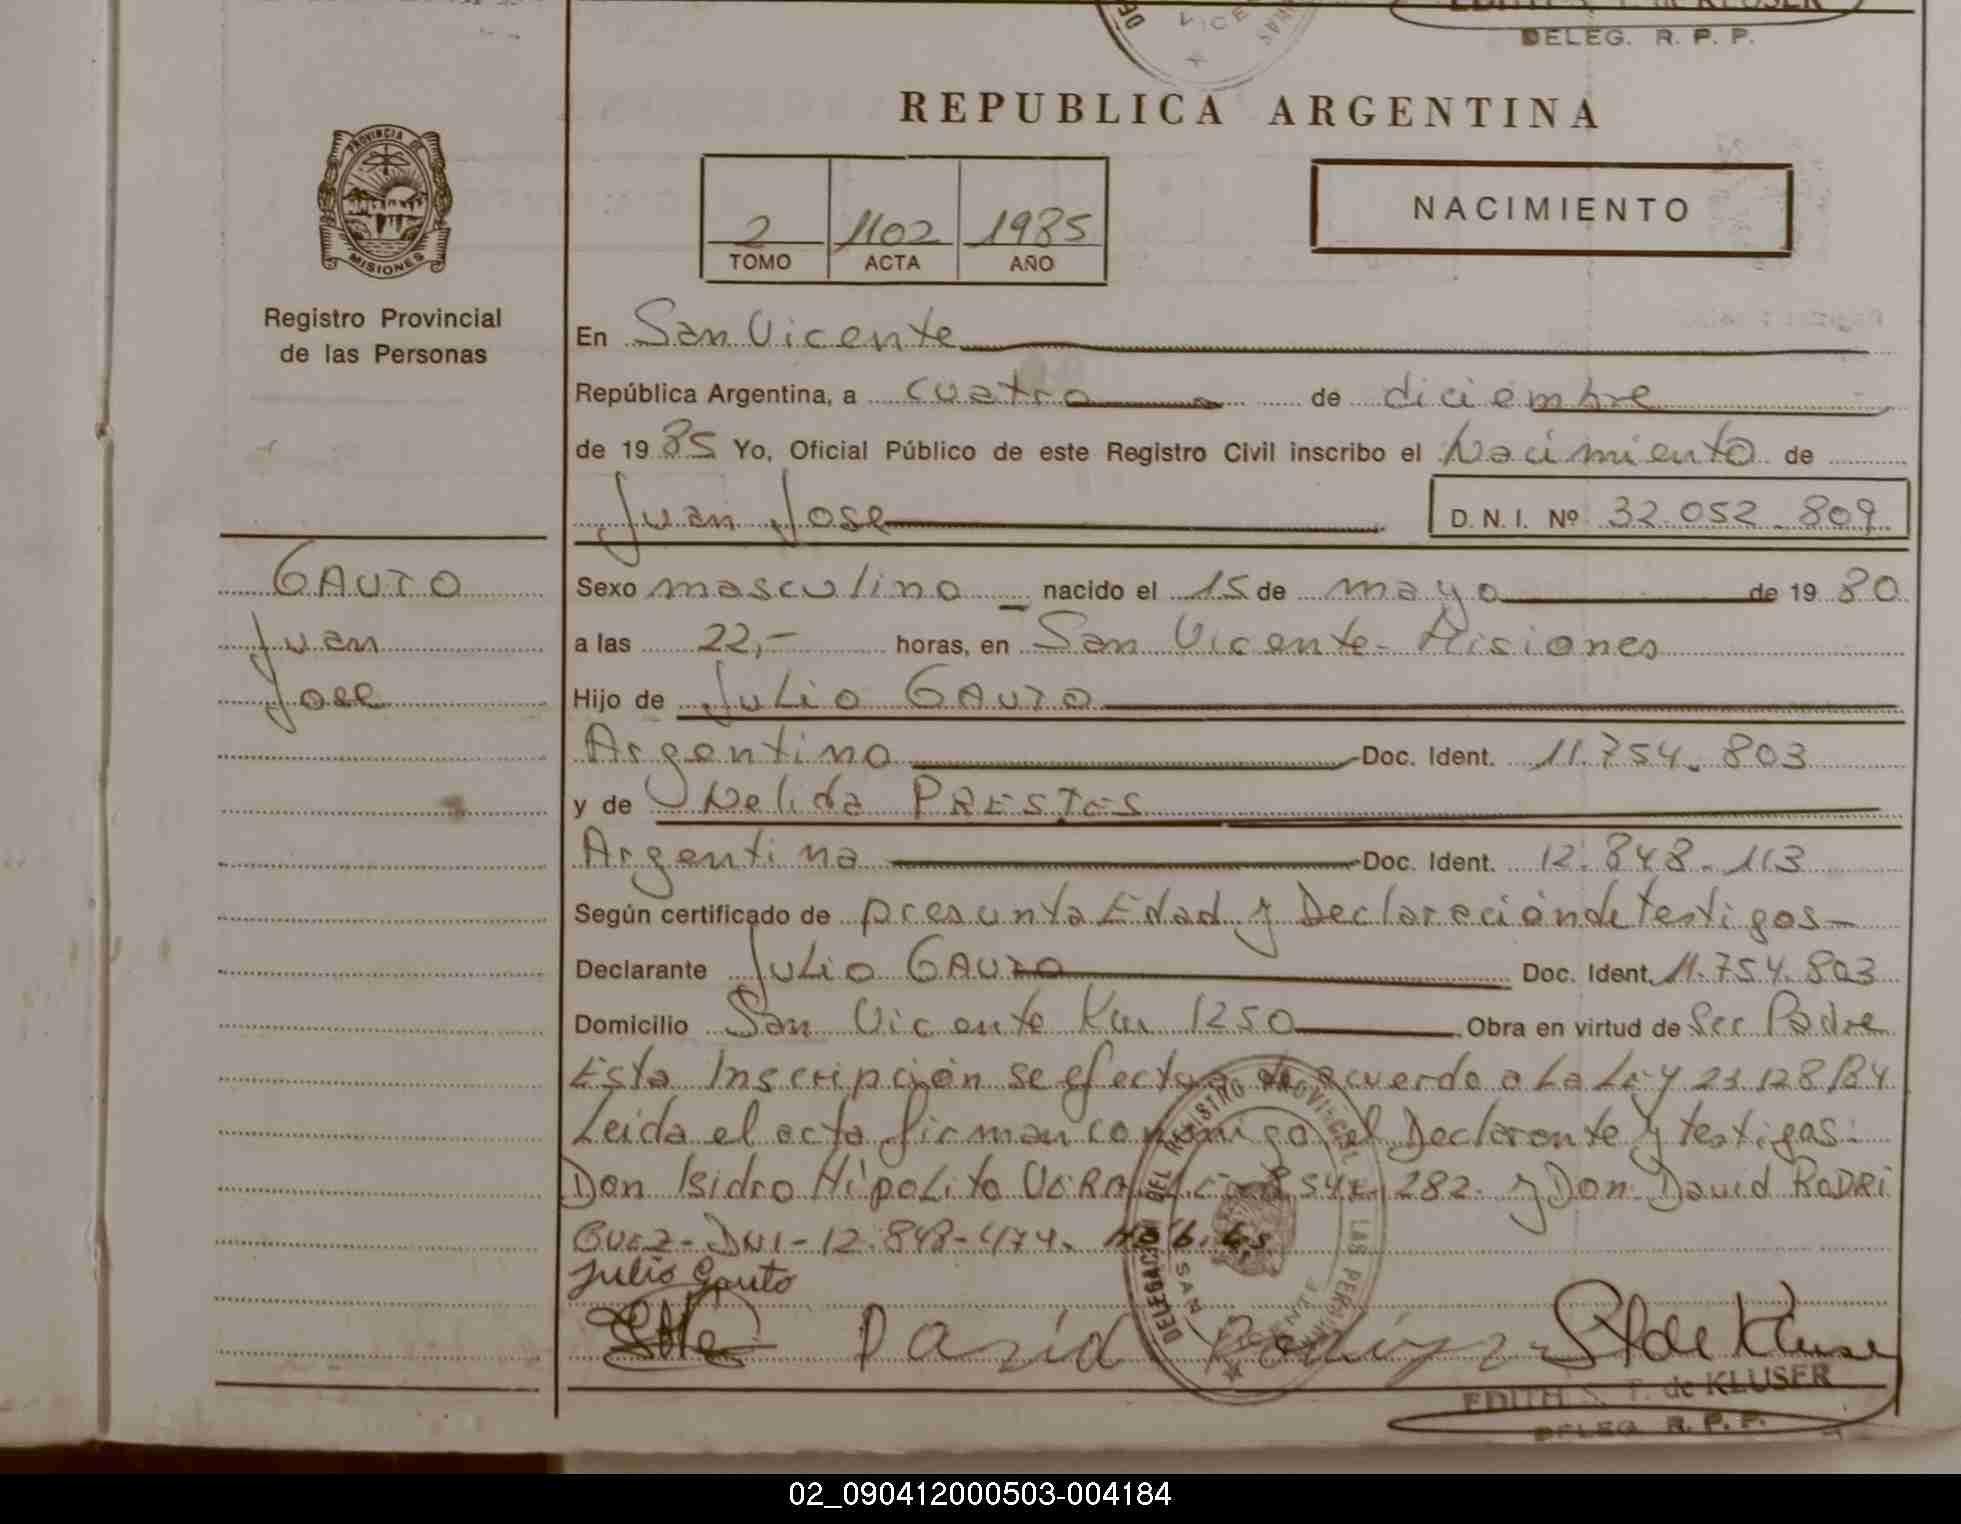 EDITH S. T. de KLUSER
DELEG. R. P. P.
REPUBLICA ARGENTINA
PROVINCIA DE
MISIONES
Registro Provincial
de las Personas
2 1102 1985
TOMO ACTA AÑO
NACIMIENTO
En San Vicente
República Argentina, a cuatro de diciembre
de 1985 Yo, Oficial Público de este Registro Civil inscribo el Nacimiento de
Juan Jose D. N. I. Nº 32.052.809
GAUTO
Juan
Jose
Sexo masculino nacido el 15 de mayo de 1980
a las 22,- horas, en San Vicente - Misiones
Hijo de Julio GAUTO
Argentino Doc. Ident. 11.754.803
y de Nelida PRESTES
Argentina Doc. Ident. 12.848.113
Según certificado de presunta Edad y Declaración de testigos-
Declarante Julio GAUTO Doc. Ident. 11.754.803
Domicilio San Vicente Km 1250 Obra en virtud de Ser Padre
Esta Inscripción se efectua de acuerdo a La Ley 23.128/84
Leida el acta firman conmigo el Declarante y testigos:
Don Isidro HipoLito VERA 282. y Don David RODRI
GUEZ - DNI - 12.848-474.
Julio Gauto
David Rodriguez S T de Kluser
DELEGACION DEL REGISTRO PROVINCIAL DE LAS PERSONAS
SAN VICENTE
EDITH S. T. de KLUSER
DELEG. R. P. P.
02_090412000503-004184